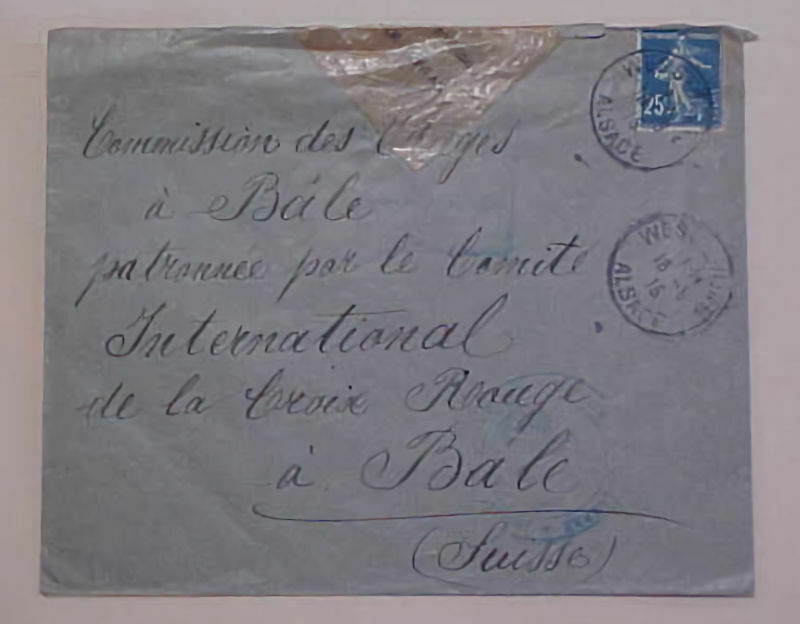 Commission des
à Bâle
patronnee par le Comité
International
de la Croix Rouge
à Bâle
(Suisse)
25
ALSACE
WES
16
15
ALSACE